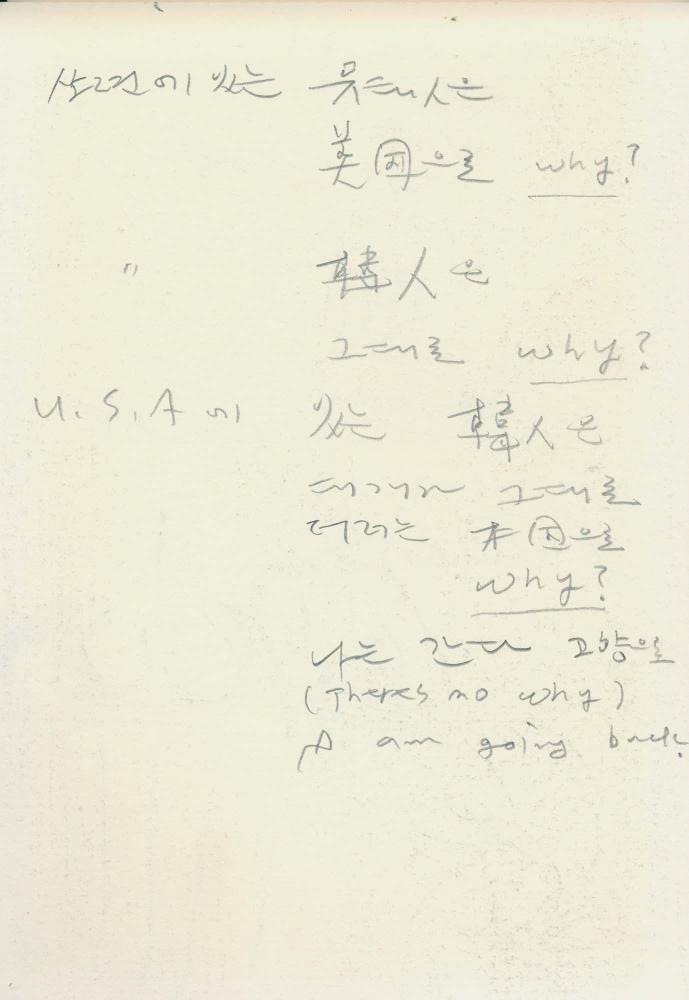 소련에 있는 유태人은
美国으로 why?
〃 韓人은
그대로 why?
U.S.A에 있는 韓人은
대개가 그대로
더러는 本国으로
why?
나는 간다 고향으로
(Theres no why)
I am going back.